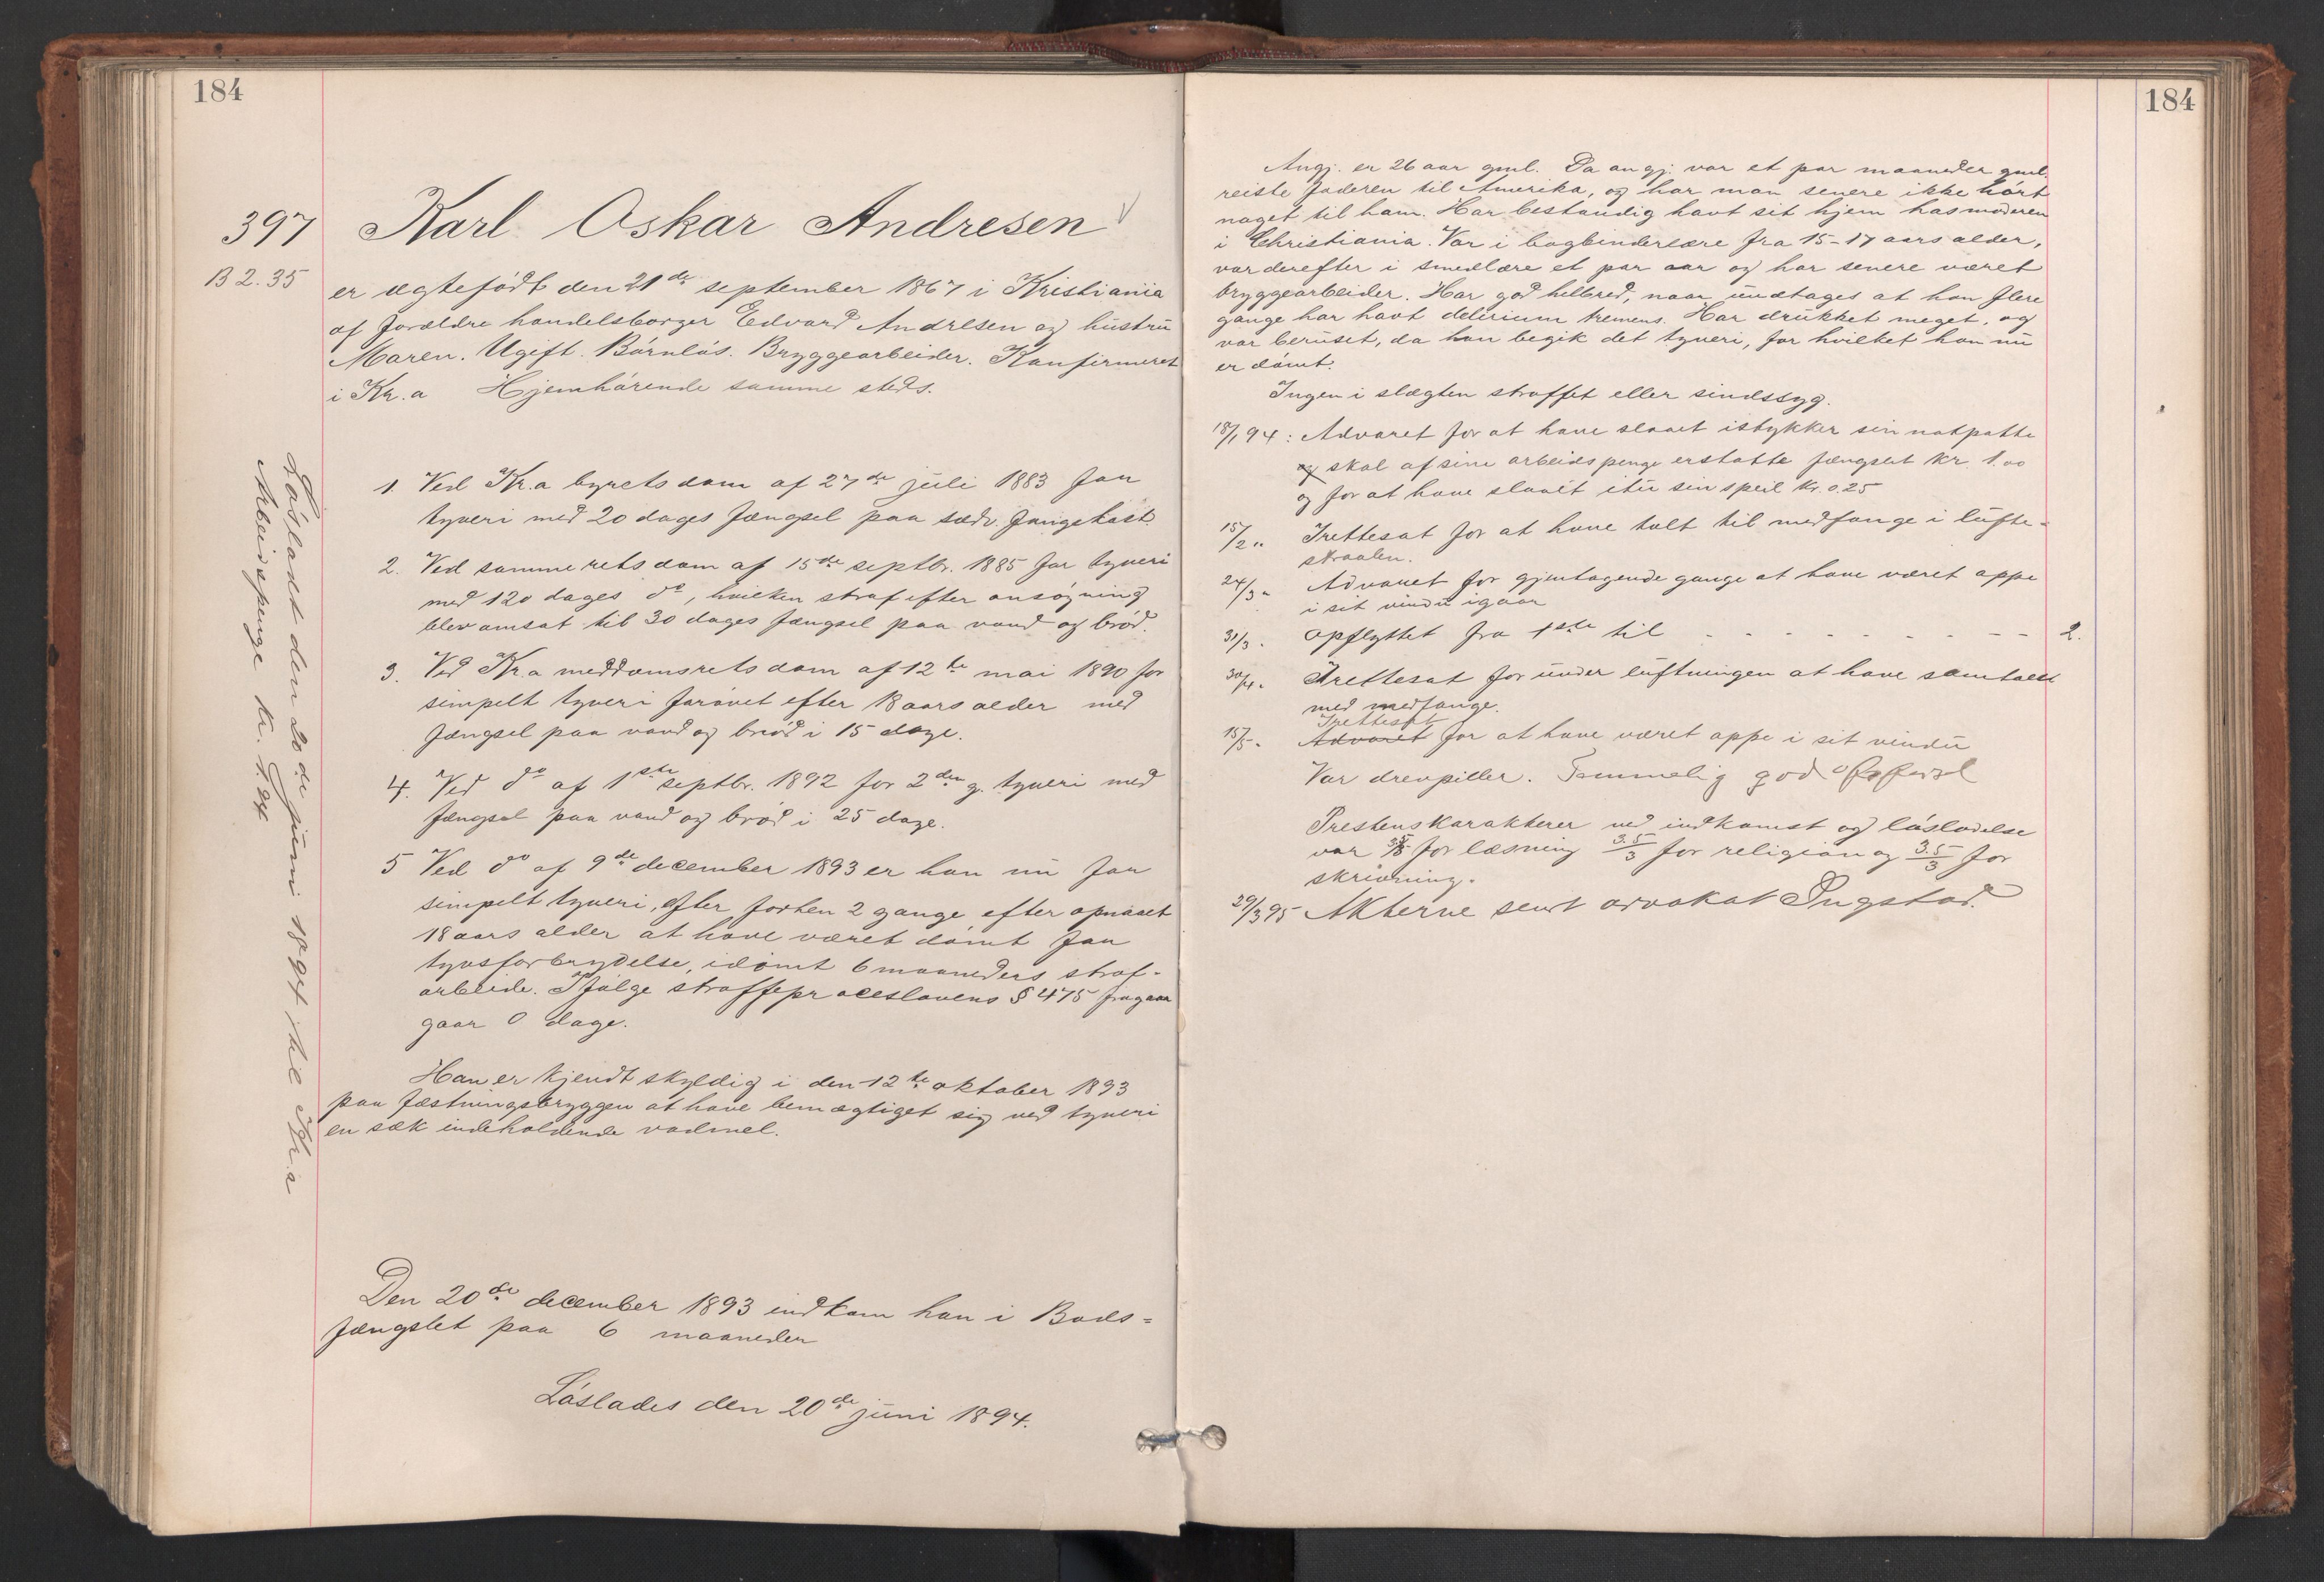 184
397 Karl Oskar Andresen
B 2.35
er ægtefödt den 21de september 1867 i Kristiania
af forældre handelsborger Edvard Andresen og hustru
Maren. Ugift. Börnlös. Bryggearbeider. Konfirmeret
i Kr.a Hjemhörende samme steds.
1. Ved Kr.a byrets dom af 27de juli 1883 for
tyveri med 20 dages fængsel paa sædv. fangekost.
2. Ved samme rets dom af 15de septbr. 1885 for tyveri
med 120 dages do, hvilken straf efter ansögning
blev omsat til 30 dages fængsel paa vand og bröd.
3. Ved Kr.a meddomsrets dom af 12te mai 1890 for
simpelt tyveri forövet efter 18 aars alder med
fængsel paa vand og bröd i 15 dage.
4. Ved do af 1ste septbr. 1892 for 2den g. tyveri med
fængsel paa vand og bröd i 25 dage.
5 Ved do af 9de december 1893 er han nu for
simpelt tyveri, efter forhen 2 gange efter opnaaet
18 aars alder at have været dömt for
tyvsforbrydelse, idömt 6 maaneders straf-
arbeide. Ifölge straffeproceslovens § 475 fragaar
gaar 0 dage.
Han er kjendt skyldig i den 12te oktober 1893
paa Fæstningsbryggen at have bemægtiget sig ved tyveri
en sæk indeholdende vadmel.
Den 20de december 1893 indkom han i Bods-
fængslet paa 6 maaneder
Löslades den 20de juni 1894.
Lösladt den 20de juni 1894 til Kr.a
Arbeidspenge kr.
184
Angj. er 26 aar gml. Da angj. var et par maaneder gml.
reiste faderen til Amerika, og har man senere ikke hört
noget til ham. Har bestandig havt sit hjem hos moderen
i Christiania. Var i bogbinderlære fra 15-17 aars alder,
var derefter i smedlære et par aar og har senere været
bryggearbeider. Har god helbred, naar undtages at han flere
gange har havt delirium tremens. Har drukket meget, og
var beruset, da han begik det tyveri, for hvilket han nu
er dömt.
Ingen i slægten straffet eller sindssyg.
18/1 94: Advaret for at have slaaet istykker sin natpotte
og skal af sine arbeidspenge erstatte fængslet kr. 1.00
og for at have slaaet itu sin speil kr. 0.25
15/2 " Irettesat for at have talt til medfange i lufte-
straalen.
24/3 " Advaret for gjentagende gange at have været oppe
i sit vindu igaar
31/3 " Opflyttet fra 1ste til - - - - - - - - - - 2.
30/4 " Irettesat for under luftningen at have samtalet
med medfange.
Irettesat
15/5 " Advaret for at have været oppe i sit vindu
Var drevpiller. Temmelig god opførsel
Prestens karakterer ved indkomst og lösladelse
var for læsning 3.5/3 for religion og 3.5/3 for
skrivning.
29/3 95 Akterne sendt advokat